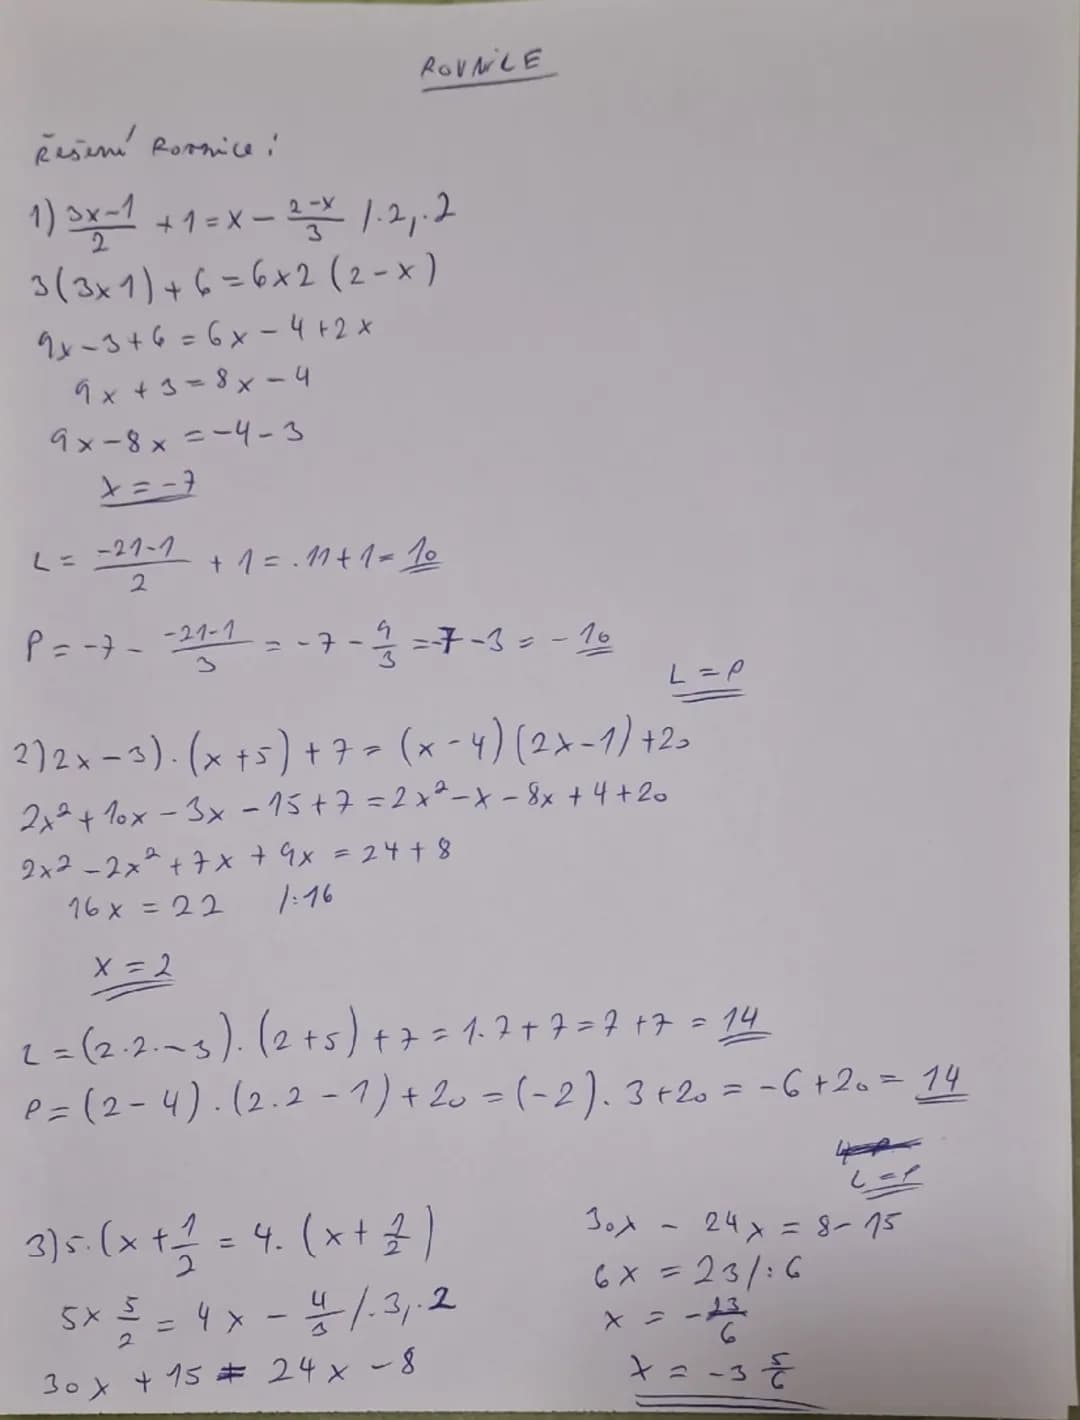 ROVNICE
Řešení Rovnice:
1) \frac{3x-1}{2} + 1 = x - \frac{2-x}{3} /.2,.2
3(3x1) + 6 = 6x2 (2-x)
9x - 3 + 6 = 6x - 4 + 2x
9x + 3 = 8x - 4
9x - 8x = -4 - 3
x = -7
L = \frac{-21-1}{2} + 1 = .11 + 1 = 10
P = -7 - \frac{-21-1}{3} = -7 - \frac{9}{3} = -7 - 3 = -10
L = P
2) 2x - 3).(x + 5) + 7 = (x - 4)(2x - 1) + 20
2x² + 10x - 3x - 15 + 7 = 2x² - x - 8x + 4 + 20
2x² - 2x² + 7x + 9x = 24 + 8
16x = 22 /:16
x = 2
L = (2.2.-3).(2+5) + 7 = 1.7 + 7 = 7 + 7 = 14
P = (2-4).(2.2-1) + 20 = (-2).3 + 20 = -6 + 20 = 14
L = P
3) 5.(x + \frac{1}{2} = 4.(x + \frac{1}{2})
5x \frac{5}{2} = 4x - \frac{4}{3} /.3,.2
30x + 15 = 24x - 8
30x - 24x = 8 - 15
6x = 23 /:6
x = -\frac{23}{6}
x = -3 \frac{5}{6}